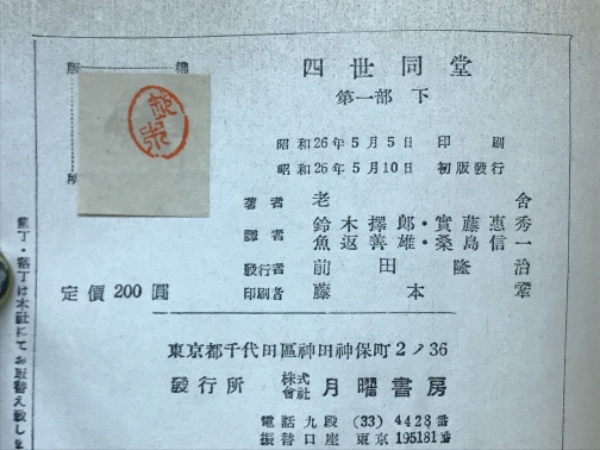 四世同堂
第一部 下
昭和26年5月5日 印刷
昭和26年5月10日 初版發行
著者 老舍
譯者 鈴木擇郎・實藤惠秀
魚返善雄・桑島信一
發行者 前田隆治
印刷者 藤本
定價200圓
東京都千代田區神田神保町2ノ36
發行所 株式會社 月曜書房
電話九段 (33) 4428番
振替口座 東京195181番
落丁・亂丁は本社にてお取替え致しま